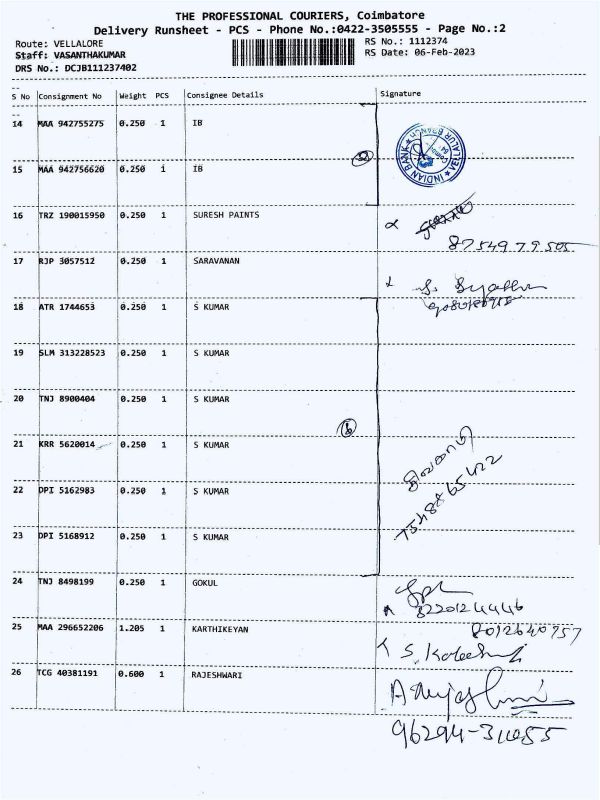 THE PROFESSIONAL COURIERS, Coimbatore
Delivery Runsheet - PCS - Phone No.:0422-3505555 - Page No.:2
Route: VELLALORE
RS No.: 1112374
Staff: VASANTHAKUMAR
RS Date: 06-Feb-2023
DRS No.: DCJB111237402
S No Consignment No Weight PCS Consignee Details Signature
14 MAA 942755275 0.250 1 IB
INDIAN BANK VELLALUR BRANCH
15 MAA 942756620 0.250 1 IB
16 TRZ 190015950 0.250 1 SURESH PAINTS
8754979505
17 RJP 3057512 0.250 1 SARAVANAN
18 ATR 1744653 0.250 1 S KUMAR
19 SLM 313228523 0.250 1 S KUMAR
20 TNJ 8900404 0.250 1 S KUMAR
6
21 KRR 5620014 0.250 1 S KUMAR
22 DPI 5162983 0.250 1 S KUMAR
23 DPI 5168912 0.250 1 S KUMAR
24 TNJ 8498199 0.250 1 GOKUL
8220124446
25 MAA 296652206 1.205 1 KARTHIKEYAN
8012640757
26 TCG 40381191 0.600 1 RAJESHWARI